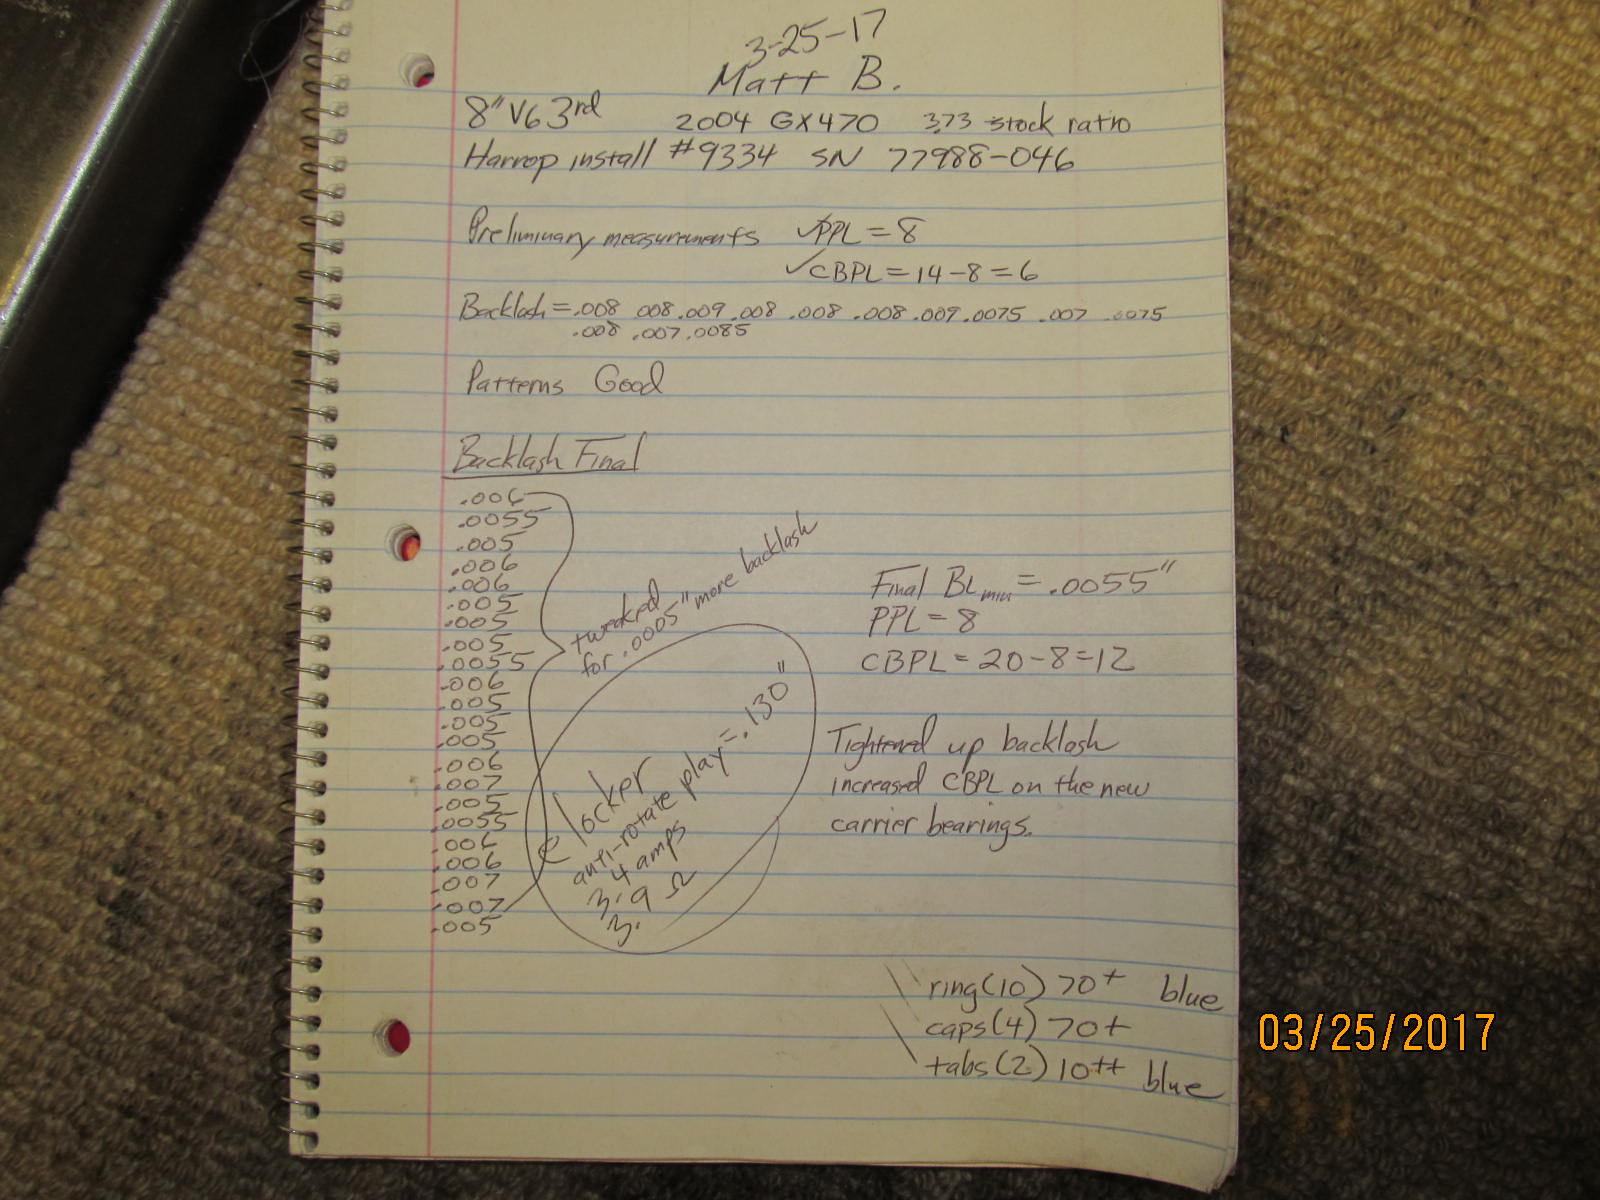 3-25-17
Matt B.
8" V6 3rd 2004 GX470 3.73 stock ratio
Harrop install #9334 SN 77988-046
Preliminary measurements ✓PPL = 8
✓CBPL = 14-8 = 6
Backlash = .008 .008 .009 .008 .008 .008 .009 .0075 .007 .0075
.008 .007 .0085
Patterns Good
Backlash Final
.006
.0055
.005
.006
.006
.005
.005
.005
.0055
.006
.005
.005
.005
.006
.007
.005
.0055
.006
.006
.007
.007
.005
tweaked
for .0005" more backlash
e locker
anti-rotate play = .130"
4 amps
3.9 Ω
3.
Final BLmin = .0055"
PPL = 8
CBPL = 20-8 = 12
Tightened up backlash
increased CBPL on the new
carrier bearings.
ring(10) 70+ blue
caps(4) 70+
tabs(2) 10++ blue
03/25/2017